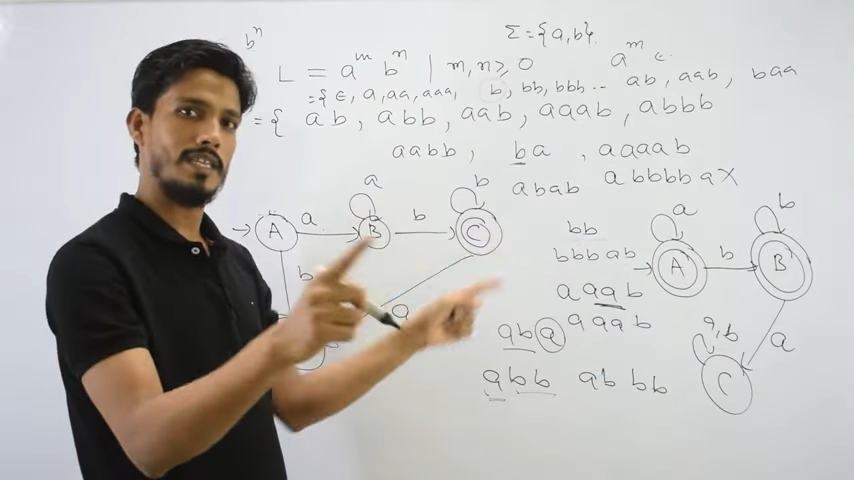 Σ = {a, b}
b^n
L = a^m b^n | m, n ≥ 0
a^m ∈
= {ε, a, aa, aaa, b, bb, bbb ... ab, aab, baa
= { ab, abb, aab, aaab, abbb
aabb, ba, aaaab
abab abbbbaX
a a b
A B C
a b
b a
bb
bbbab
aaab
aba aaab
abb abbb
a b
A B
b a
a,b
C